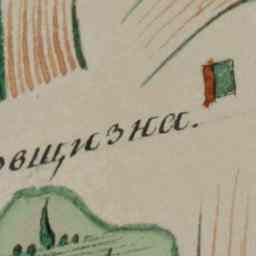 овщизна.